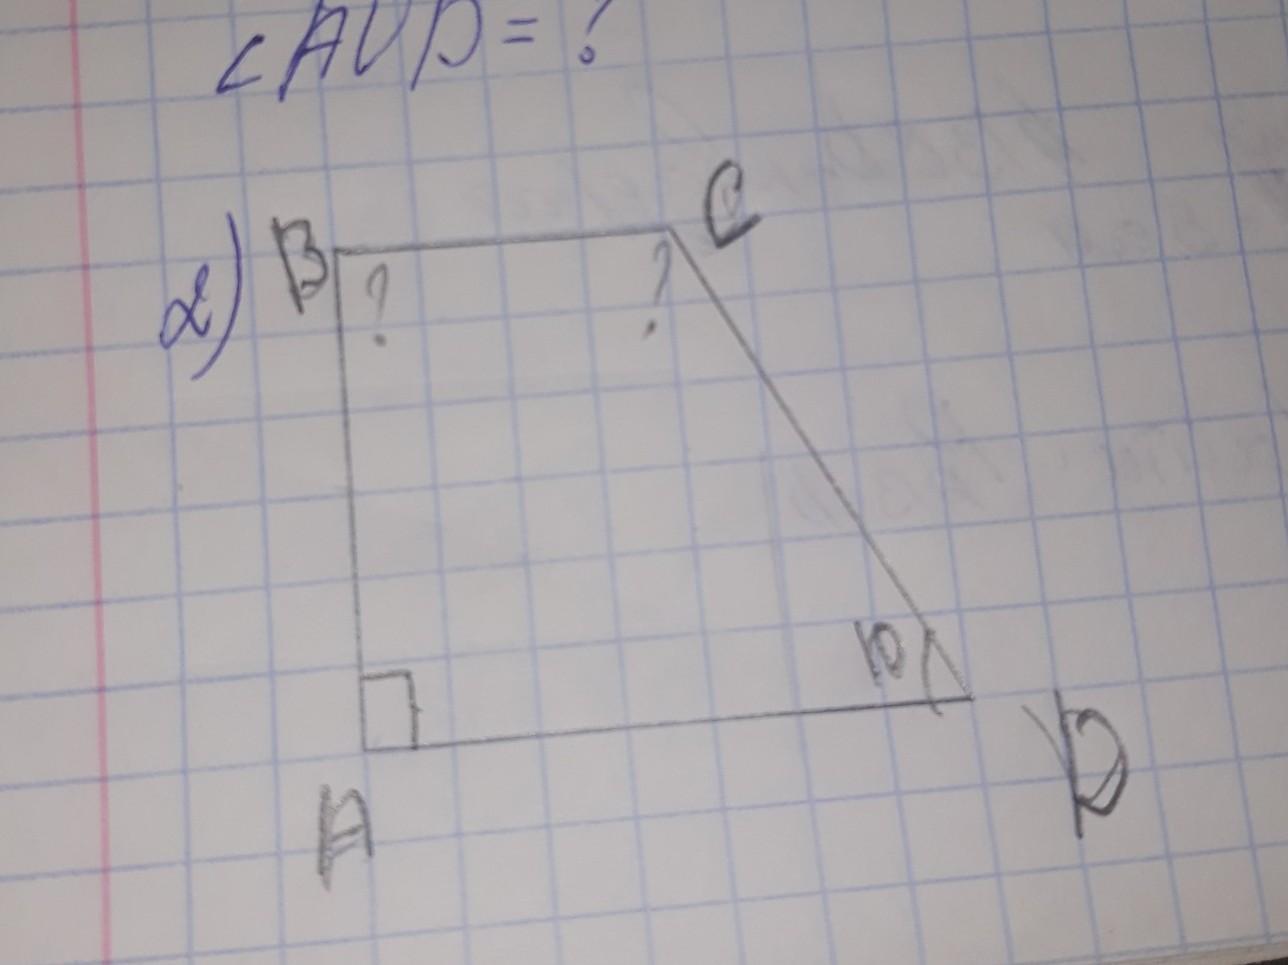 ∠AVD = ?
2) B C
? ?
10
A D